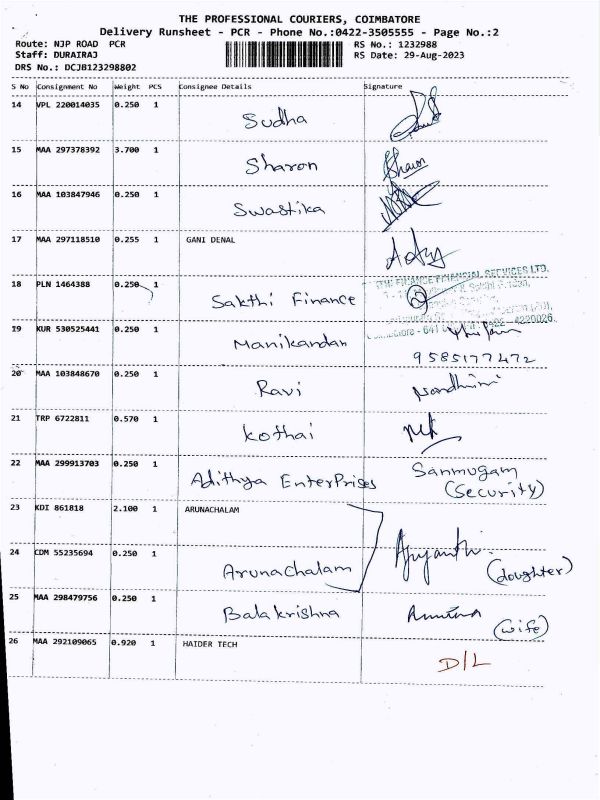 THE PROFESSIONAL COURIERS, COIMBATORE
Delivery Runsheet - PCR - Phone No.:0422-3505555 - Page No.:2
Route: NJP ROAD PCR RS No.: 1232988
Staff: DURAIRAJ RS Date: 29-Aug-2023
DRS No.: DCJB123298802
S No Consignment No Weight PCS Consignee Details Signature
14 VPL 220014035 0.250 1 Sudha
15 MAA 297378392 3.700 1 Sharon Sharon
16 MAA 103847946 0.250 1 Swastika
17 MAA 297118510 0.255 1 GANI DENAL
18 PLN 1464388 0.250 1 Sakthi Finance
FINANCE FINANCIAL SERVICES LTD.
19 KUR 530525441 0.250 1 Manikandan
9585177472
20 MAA 103848670 0.250 1 Ravi Nandhini
21 TRP 6722811 0.570 1 Kothai
22 MAA 299913703 0.250 1 Adithya EnterPrises Sanmugam
(Security)
23 KDI 861818 2.100 1 ARUNACHALAM
24 CDM 55235694 0.250 1 Arunachalam (daughter)
25 MAA 298479756 0.250 1 Balakrishna
(wife)
26 MAA 292109065 0.920 1 HAIDER TECH D/L